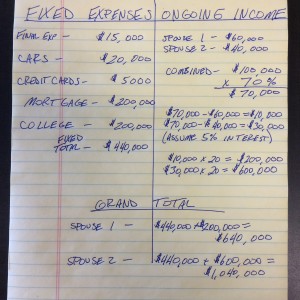 FIXED EXPENSES
FINAL EXP - $15,000
CARS - $20,000
CREDIT CARDS - $5000
MORTGAGE - $200,000
COLLEGE - $200,000
FIXED
TOTAL - $440,000
ONGOING INCOME
SPOUSE 1 - $60,000
SPOUSE 2 - $40,000
COMBINED - $100,000
x 70%
$70,000
$70,000 - $60,000 = $10,000
$70,000 - $40,000 = $30,000
(ASSUME 5% INTEREST)
$10,000 x 20 = $200,000
$30,000 x 20 = $600,000
GRAND TOTAL
SPOUSE 1 - $440,000 + $200,000 =
$640,000
SPOUSE 2 - $440,000 + $600,000 =
$1,040,000